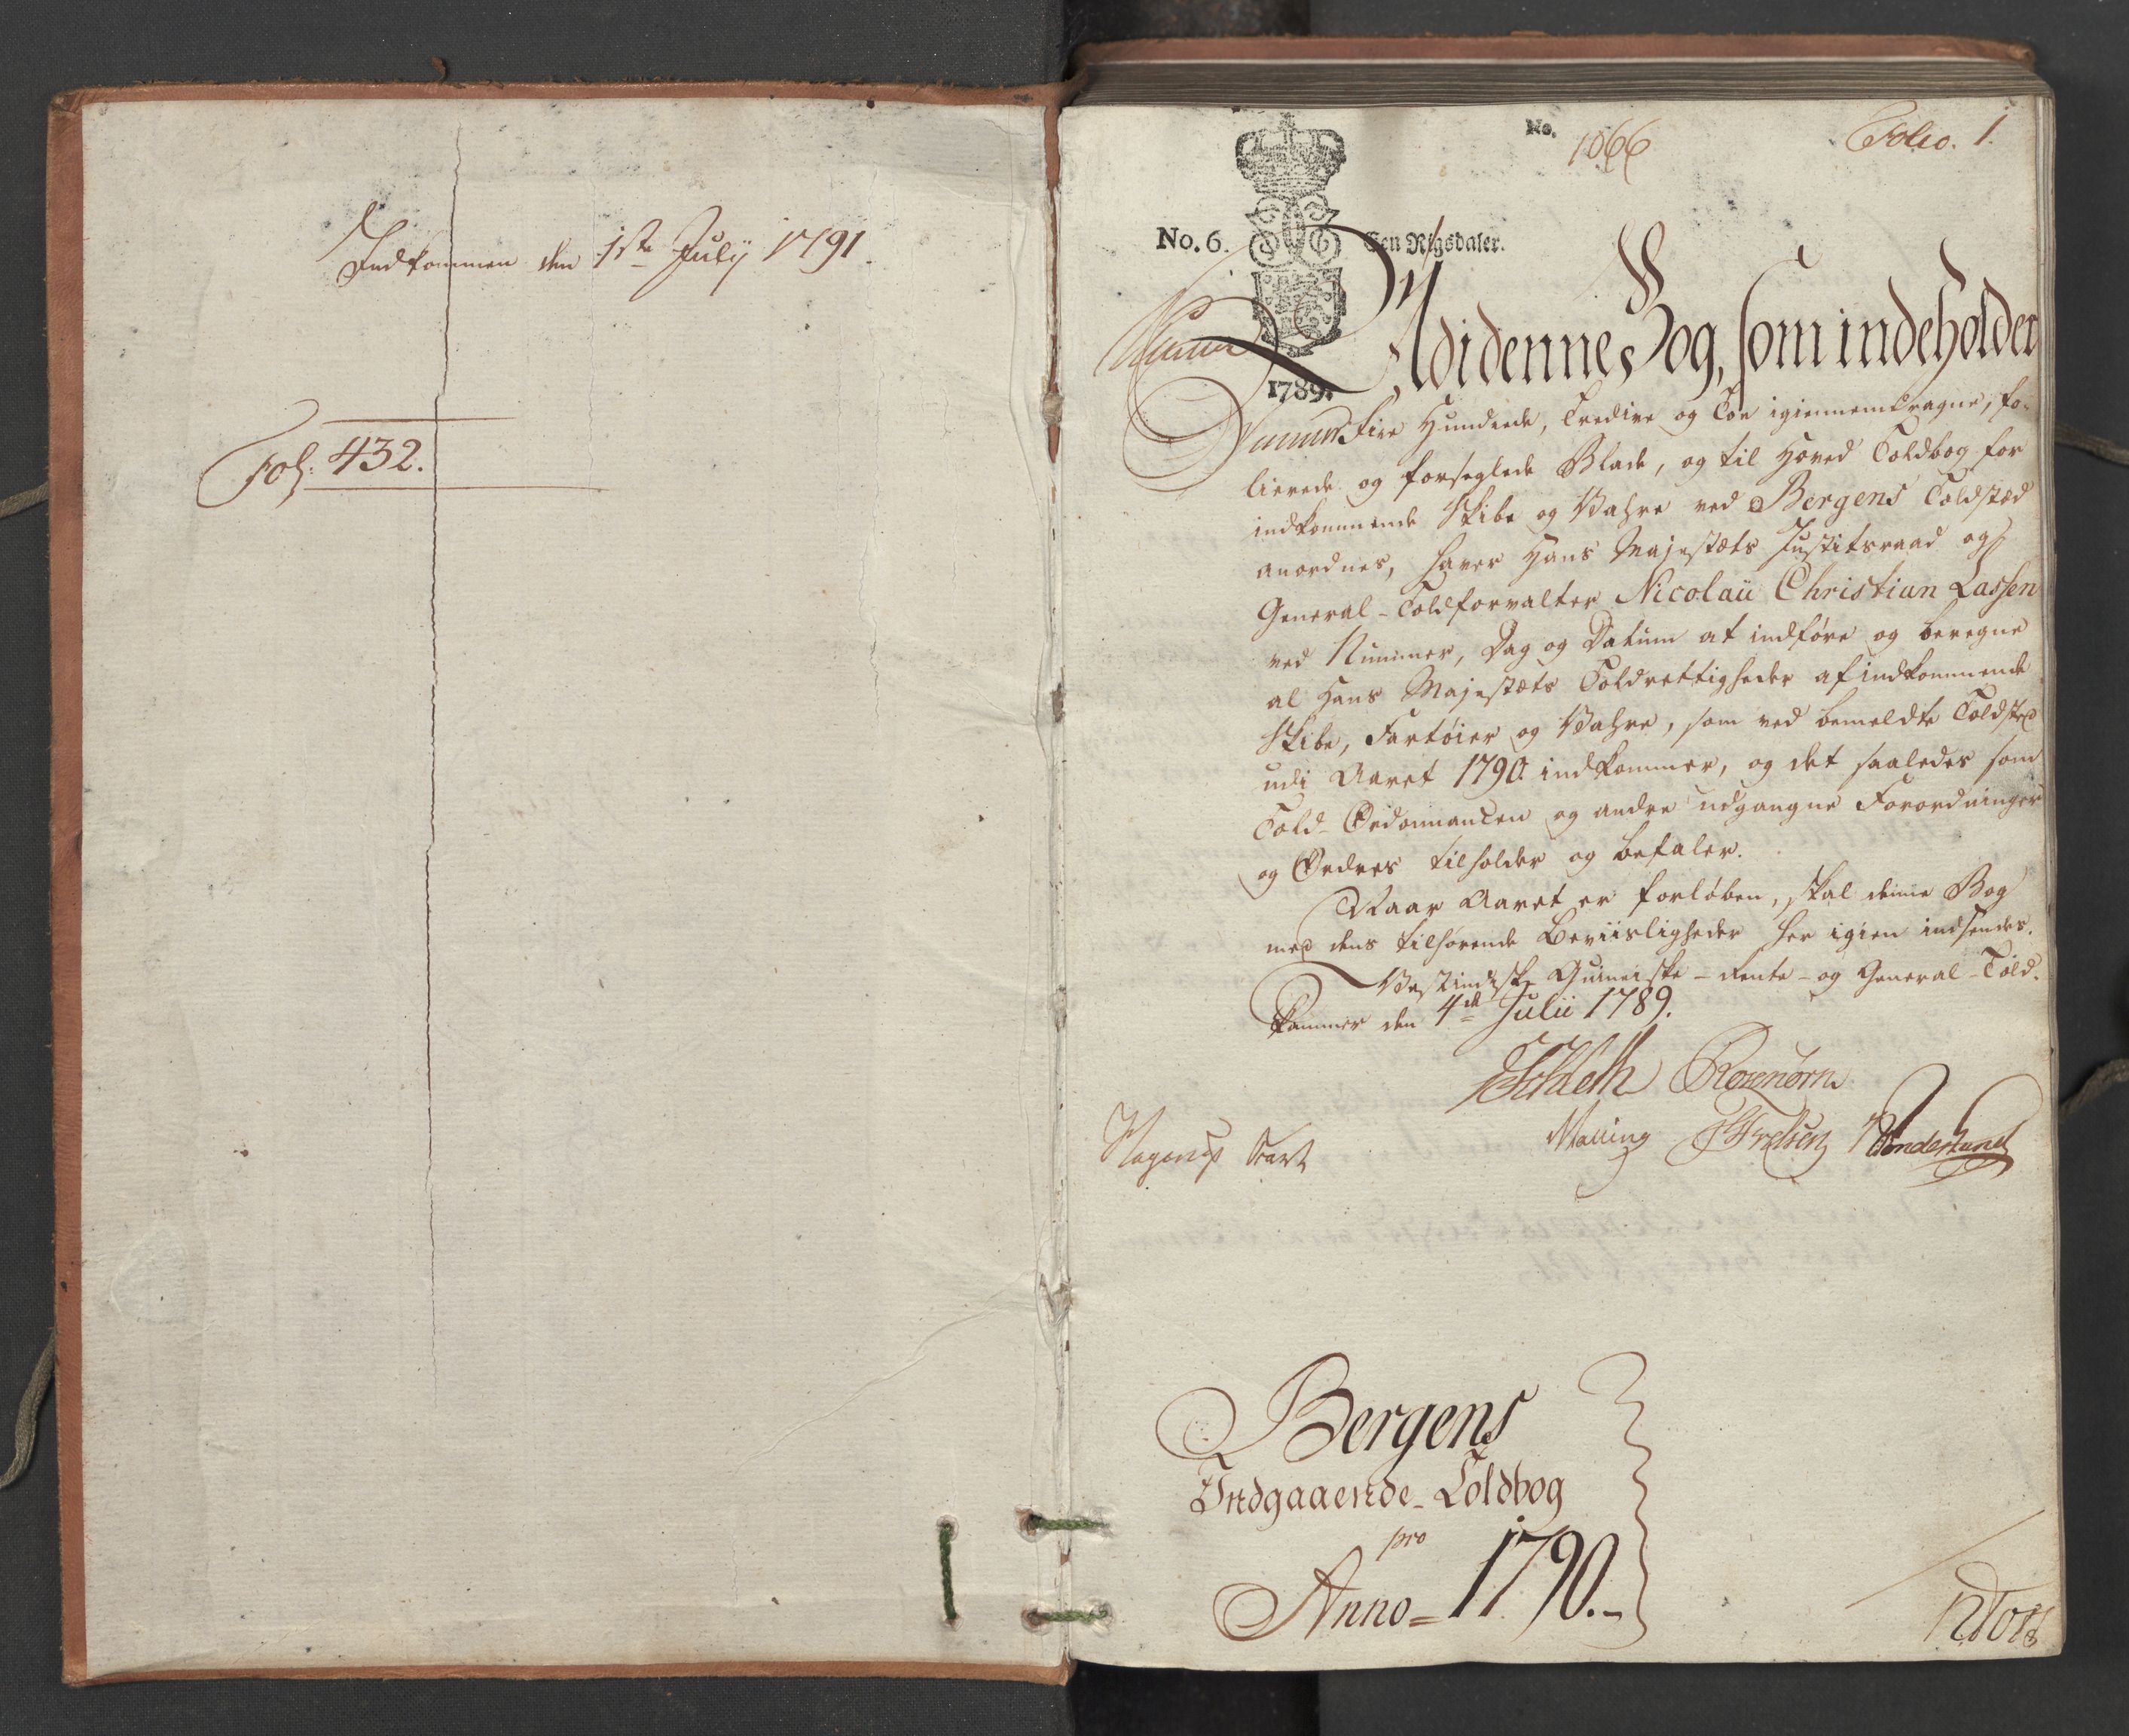 Indkommen den 1ste Julij 1791.
Fol: 432.
No. 1066
Folio. 1.
No. 6.
Een Rigsdaler.
1789.
Udi denne Bog, som indeholder
Fire Hundrede, Tredive og Toe igiennemdragne, fo-
lierede og forseglede Blade, og til Hoved Toldbog for
indkommende Skibe og Vahre ved Bergens Toldsted
anordnes, haver Hans Majestæts Justitsraad og
General-Toldforvalter Nicolaii Christian Lassen
ved Nummer, Dag og Datum at indføre og beregne
al Hans Majestæts Toldrettigheder af indkommende
Skibe, Fartøier og Vahre, som ved bemeldte Toldsted
udi Aaret 1790 indkommer, og det saaledes som
Told-Ordonnancen og andre udgangne Forordninger
og Ordres tilholder og befaler.
Naar Aaret er forløben, skal denne Bog
med dens tilhørende Beviisligheder her igien indsendes.
Vestindisk-Guineiske-Rente- og General-Told-
kammer den 4de Julii 1789.
Rosenørn
Malling
Bergens
Indgaaende-Toldbog
pro
Anno=1790.-